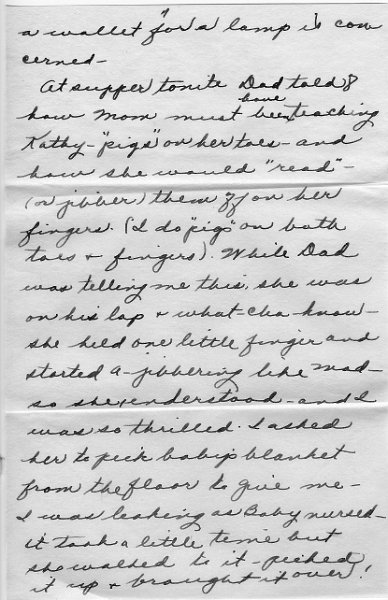 a wallet "for a lamp is con
cerned—
At supper tonite Dad told of
how Mom must have been teaching
Kathy—"pigs" on her toes—and
how she would "read"—
(or jibber) them off on her
fingers. (I do "pigs" on both
toes + fingers). While Dad
was telling me this, she was
on his lap + what-cha-know—
she held one little finger and
started a-jibbering like mad—
so she understood—and I
was so thrilled. I asked
her to pick baby's blanket
from the floor to give me—
I was leaking as Baby nursed—
it took a little time but
she walked to it—picked
it up + brought it over!